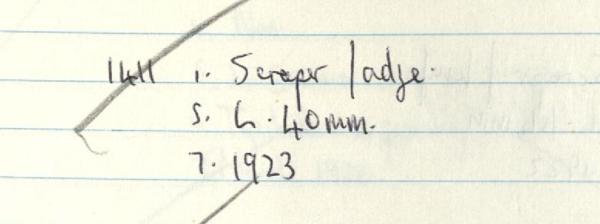 1411 1. Scraper / adze.
5. L. 40mm.
7. 1923